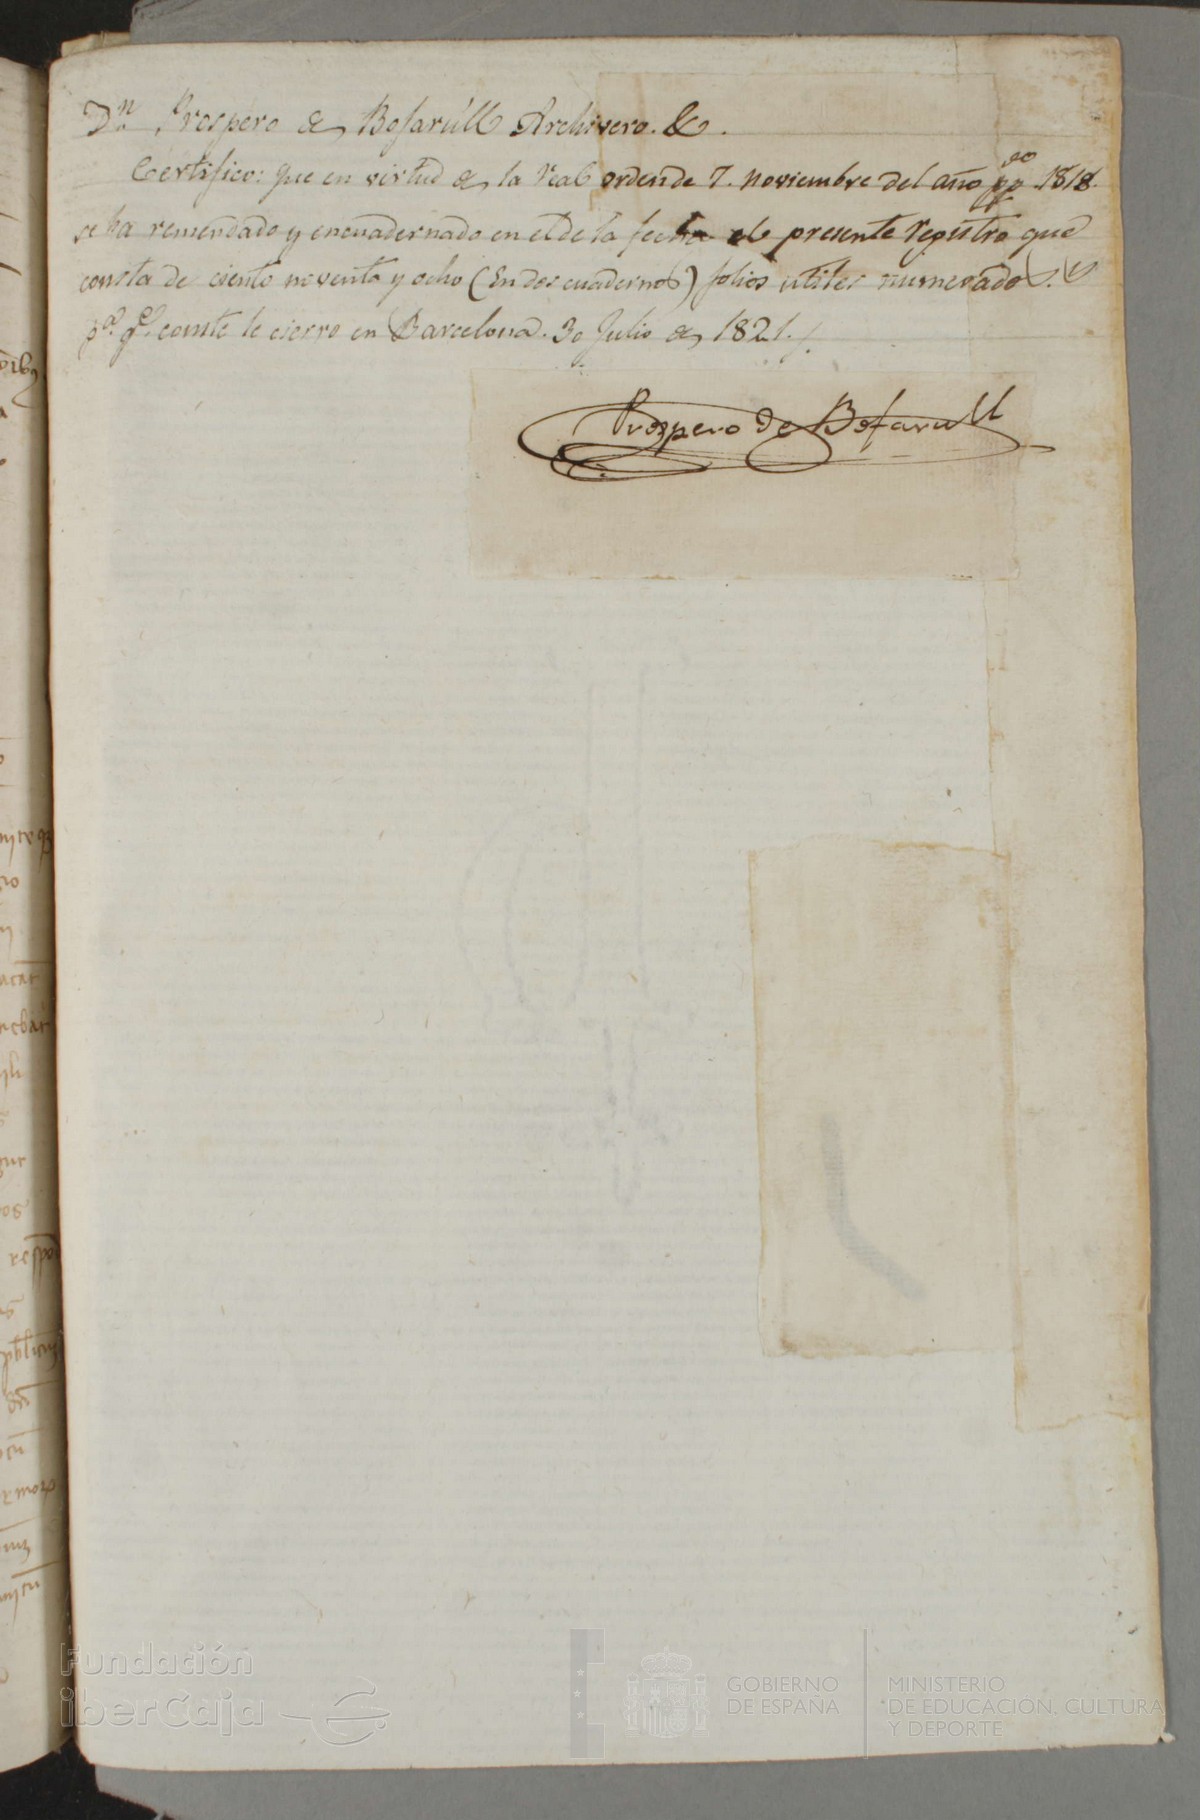 Dn. Prospero de Bofarull Archivero. &.
Certifico: que en virtud de la real orden de 7. noviembre del año pp.do 1818.
se ha remendado y encuadernado en el de la fecha el presente registro que
consta de ciento noventa y ocho (En dos cuadernos) folios utiles numerados. Y
pa. qe. conste le cierro en Barcelona. 30 Julio de 1821.
Prospero de Bofarull
Fundación
iberCaja
GOBIERNO
DE ESPAÑA
MINISTERIO
DE EDUCACIÓN, CULTURA
Y DEPORTE